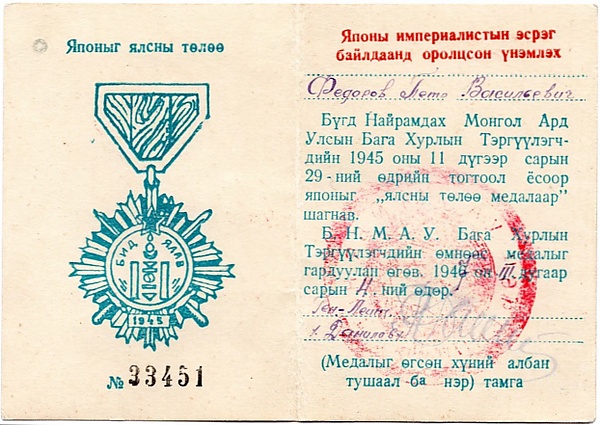 Японыг ялсны төлөө
БИД ЯЛАВ
1945
№ 33451
Японы империалистын эсрэг
байлдаанд оролцсон үнэмлэх
Федоров Петр Васильевич
Бүгд Найрамдах Монгол Ард
Улсын Бага Хурлын Тэргүүлэгч-
дийн 1945 оны 11 дүгээр сарын
29-ний өдрийн тогтоол ёсоор
японыг „ялсны төлөө медалаар”
шагнав.
Б. Н. М. А. У. Бага Хурлын
Тэргүүлэгчдийн өмнөөс медалыг
гардуулан өгөв. 194 он III дугаар
сарын 4 ний өдөр.
Ген-Лейт.
Данилов
(Медалыг өгсөн хүний албан
тушаал-ба нэр) тамга